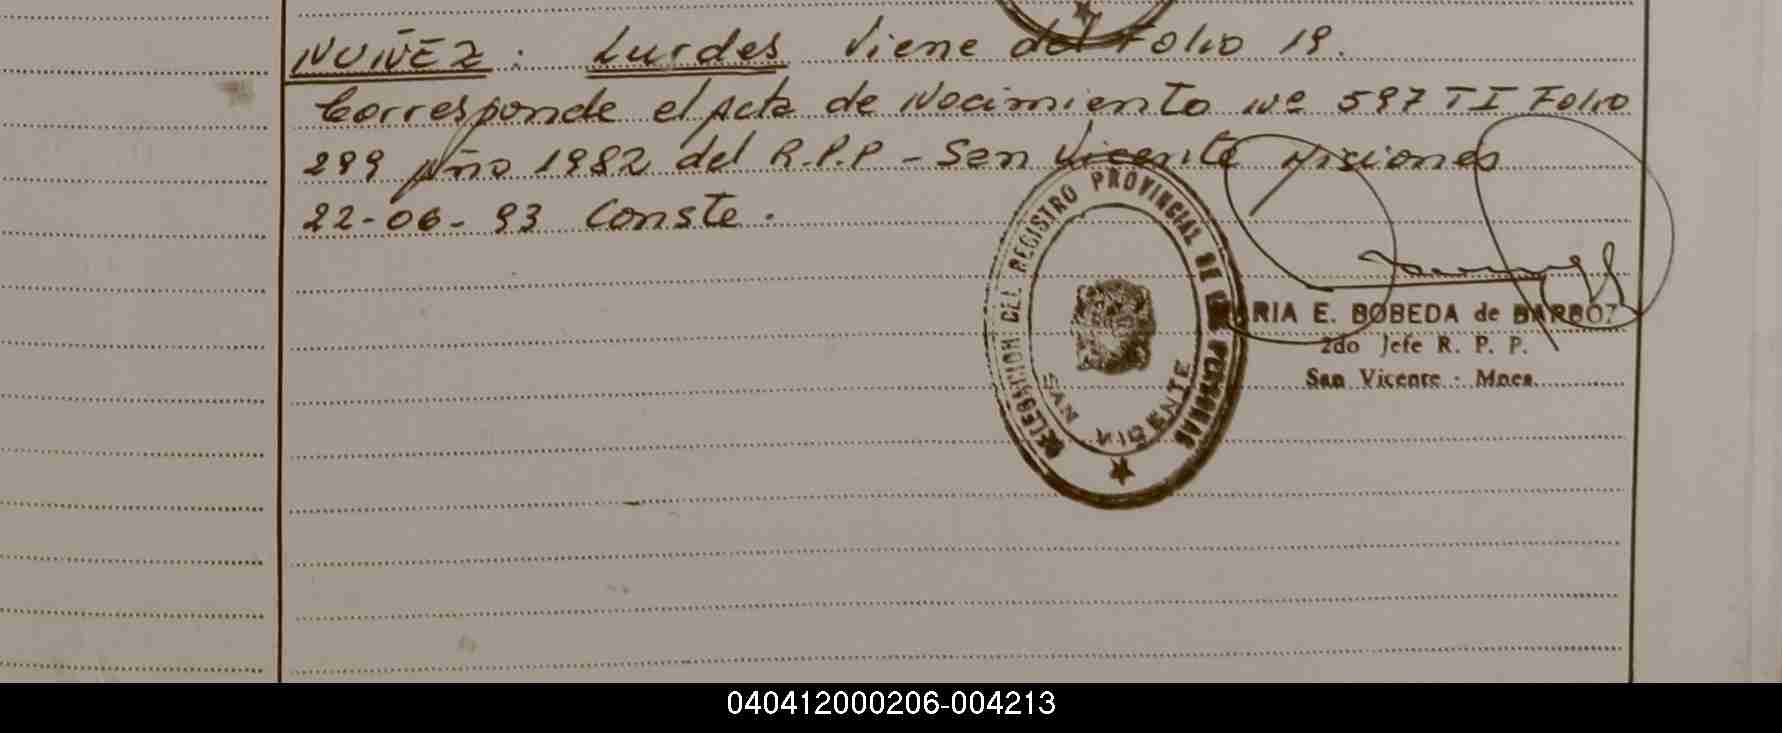 NUÑEZ: Lurdes viene del Folio 19.
Corresponde el Acta de Nacimiento Nº 597 TI Folio
299 Año 1982 del R.P.P - San Vicente Misiones
22-06-93 Conste.
DELEGACION DEL REGISTRO PROVINCIAL DE LAS PERSONAS
SAN VICENTE
RIA E. BOBEDA de BARBOZ
2do Jefe R. P. P.
San Vicente - Mnes.
040412000206-004213